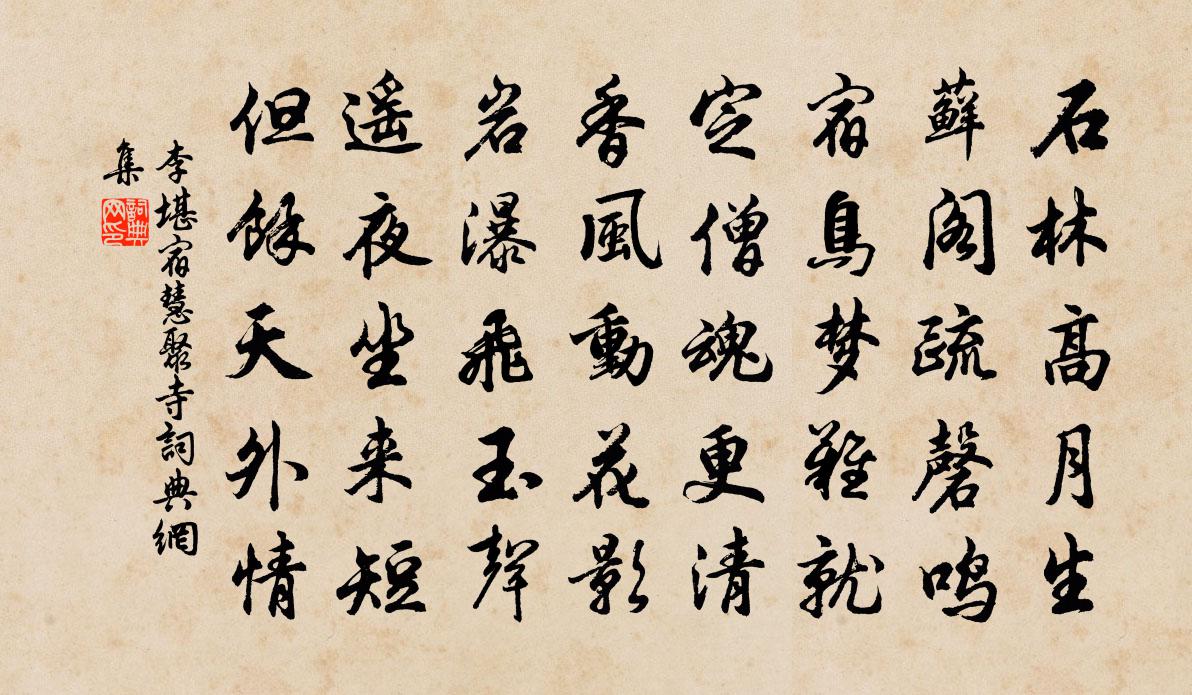 石林高月生
蘚阁疏磬鸣
宿鳥梦難就
定僧魂更清
香風動花影
岩瀑飛玉聲
遥夜坐来短
但餘天外情
李堪宿慧聚寺詞典網
集
詞典网印